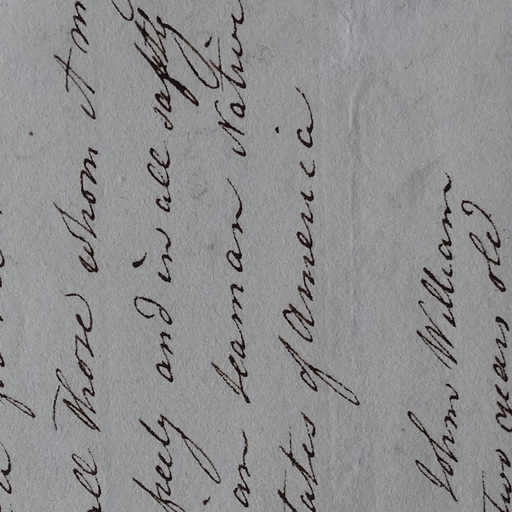 all Those whom it m
freely and in all safety
an Seaman Native
tates of America
John William
two years old